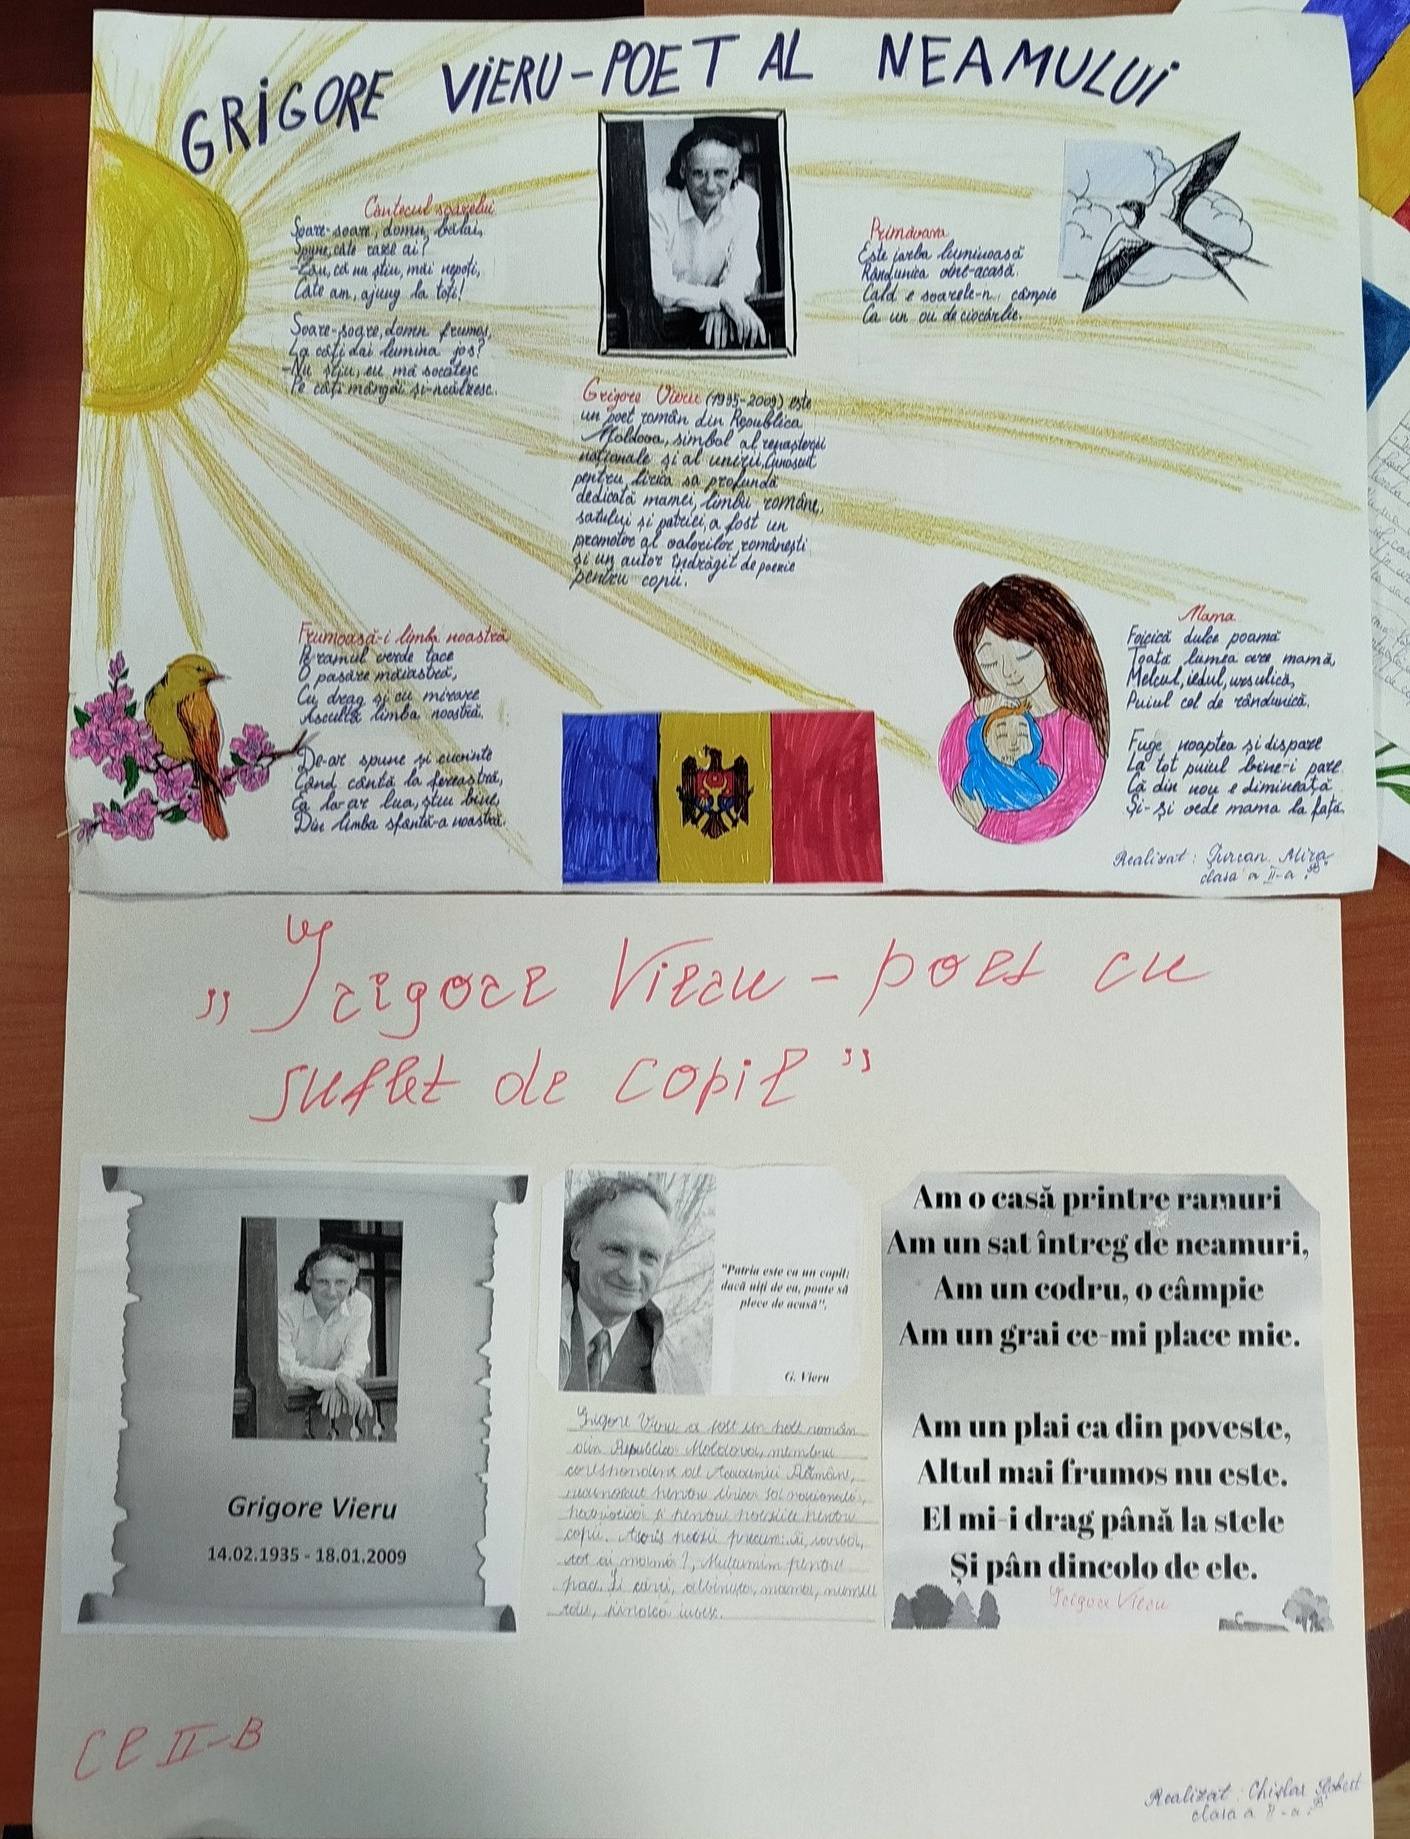 GRIGORE VIERU-POET AL NEAMULUI
Cântecul soarelui
Soare-soare, domn bălai,
Spune, câte raze ai?
-Zău, că nu știu, măi nepoți,
Câte am, ajung la toți!
Soare-soare, domn frumos,
La câți dai lumina jos?
-Nu știu, eu mă socotesc
Pe câți mângâi și-ncălzesc.
Primăvara
Este iarba luminoasă
Rândunica vine-acasă.
Cald e soarele-n câmpie
Ca un ou de ciocârlie.
Grigore Vieru (1935-2009) este
un poet român din Republica
Moldova, simbol al renașterii
naționale și al unirii. Cunoscut
pentru lirica sa profundă
dedicată mamei, limbii române,
satului și patriei, a fost un
promotor al valorilor românești
și un autor îndrăgit de poezie
pentru copii.
Frumoasă-i limba noastră
Pe ramul verde tace
O pasăre măiastră,
Cu drag și cu mirare
Ascultă limba noastră.
De-ar spune și cuvinte
Când cântă la fereastră,
Ea le-ar lua, știu bine,
Din limba sfântă-a noastră.
Mama
Foicică dulce poamă
Toată lumea are mamă,
Melcul, iedul, ursulică,
Puiul cel de rândunică.
Fuge noaptea și dispare
La tot puiul bine-i pare
Că din nou e dimineață
Și-și vede mama la față.
Realizat: Țurcan Mira
clasa a II-a "B"
„Grigore Vieru - poet cu
suflet de copil”
Grigore Vieru
14.02.1935 - 18.01.2009
"Patria este ca un copil:
dacă uiți de ea, poate să
plece de acasă".
G. Vieru
Grigore Vieru a fost un poet român
din Republica Moldova, membru
corespondent al Academiei Române,
recunoscut pentru lirica sa națională,
patriotică și pentru poeziile pentru
copii. A scris poezii precum:
tot ai mamă?, Mulțumim pentru
pace. Și cărți, albinuța, mama, numele
tău,
Am o casă printre ramuri
Am un sat întreg de neamuri,
Am un codru, o câmpie
Am un grai ce-mi place mie.
Am un plai ca din poveste,
Altul mai frumos nu este.
El mi-i drag până la stele
Și pân dincolo de ele.
Grigore Vieru
Cl II-B
Realizat: Chișlar Robert
clasa a II-a "B"